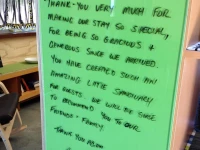 THANK-YOU VERY MUCH FOR
MAKING OUR STAY SO SPECIAL,
FOR BEING SO GRACIOUS &
GENEROUS SINCE WE ARRIVED.
YOU HAVE CREATED SUCH AN
AMAZING LITTLE SANCTUARY
FOR GUESTS. WE WILL BE SURE
TO RECOMMEND YOU TO OUR
FRIENDS + FAMILY.
THANK YOU AGAIN